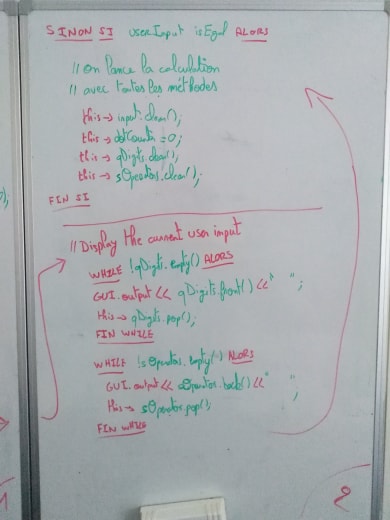 SINON SI userInput isEgal ALORS
// on lance la calculation
// avec toutes les méthodes
this → input.clear();
this → dotCounter = 0;
this → qDigits.clear();
this → sOperator.clear();
FIN SI
// Display the current user input
WHILE !qDigits.empty() ALORS
GUI.output << qDigits.front() << " ";
this → qDigits.pop();
FIN WHILE
WHILE !sOperator.empty() ALORS
GUI.output << sOperator.back() << " ";
this → sOperator.pop();
FIN WHILE
1
2